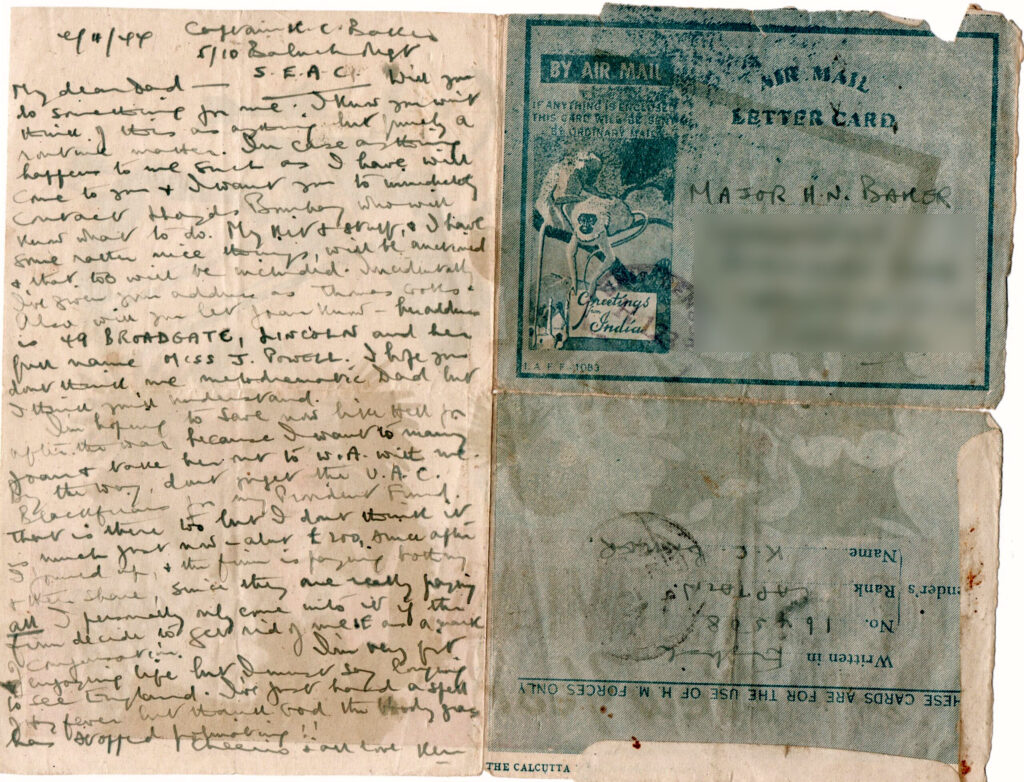 4/11/44 Captain K. C. Baker
5/10 Baluch Regt
S.E.A.C.
My dear Dad — Will you
do something for me. I know you won't
think of this as anything but purely a
routine matter. In case anything
happens to me such as I have will
come to you & I want you to immediately
contact Lloyds Bombay who will
know what to do. My kit & stuff, & I have
some rather nice things, will be auctioned
& that too will be included. Incidentally
I've given your address as Thomas Cooks.
Also will you let Joan know – her address
is 49 BROADGATE, LINCOLN and her
full name MISS J. POWELL. I hope you
don't think me melodramatic Dad but
I think you'll understand.
I'm hoping to save now like Hell for
after the war because I want to marry
Joan & take her out to W.A. with me
By the way, don't forget the U.A.C.
Blackfriars for my Provident Fund.
That is there too but I don't think it
is much just now – abt £200, since after
I joined up, & the firm is paying both my
& their share, since they are really paying
all I personally only come into it if the
firm decide to get rid of me or as a mark
of I'm very fit
& enjoying life but I must say longing
to see England. I've just had a spell
of fever but thank God the bloody
has stopped !!
Cheerio & all love Ken
BY AIR MAIL
IF ANYTHING IS ENCLOSED
THIS CARD WILL BE SENT
BY ORDINARY MAIL
Greetings
from
India
I.A.F.F. 1083
AIR MAIL
LETTER CARD
MAJOR H.N. BAKER
THESE CARDS ARE FOR THE USE OF H.M. FORCES ONLY
Written in English
No. 164508
Sender's Rank CAPTAIN
Name K.C.
THE CALCUTTA